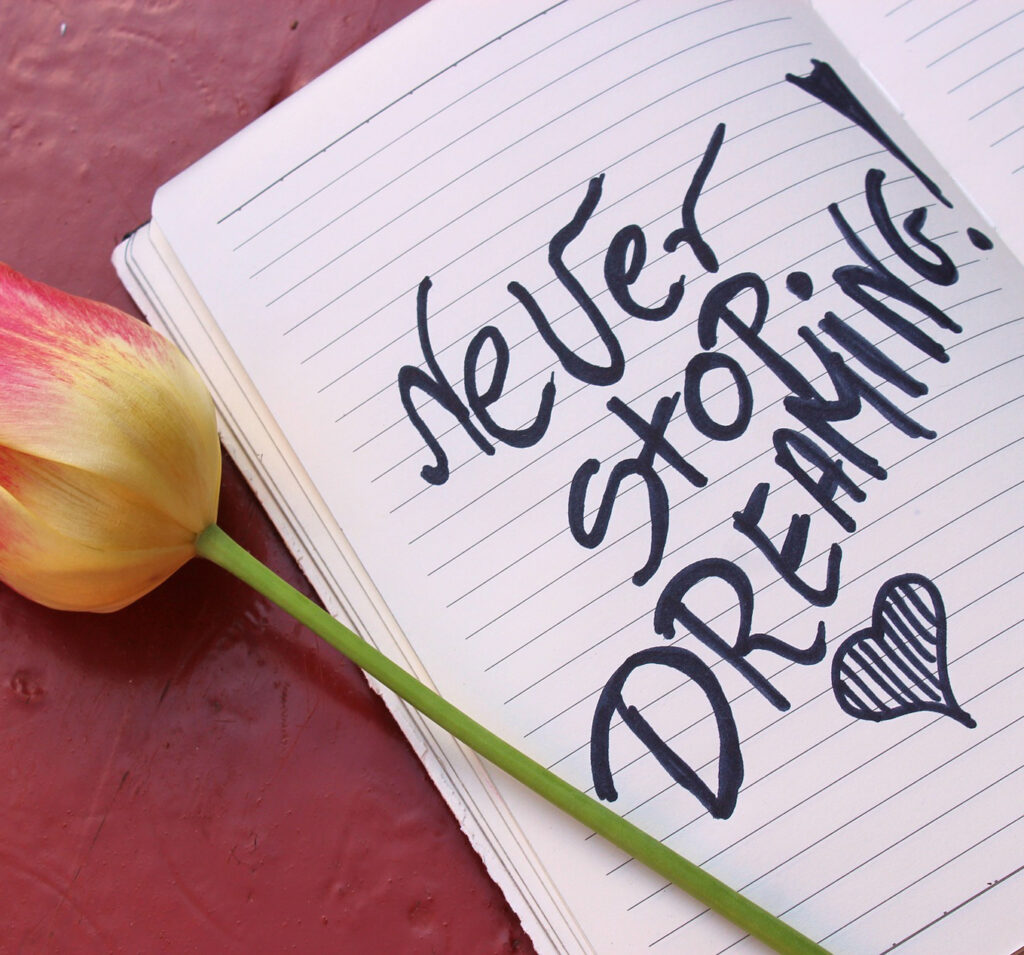 NeVer
StOP
DREAMiNG!